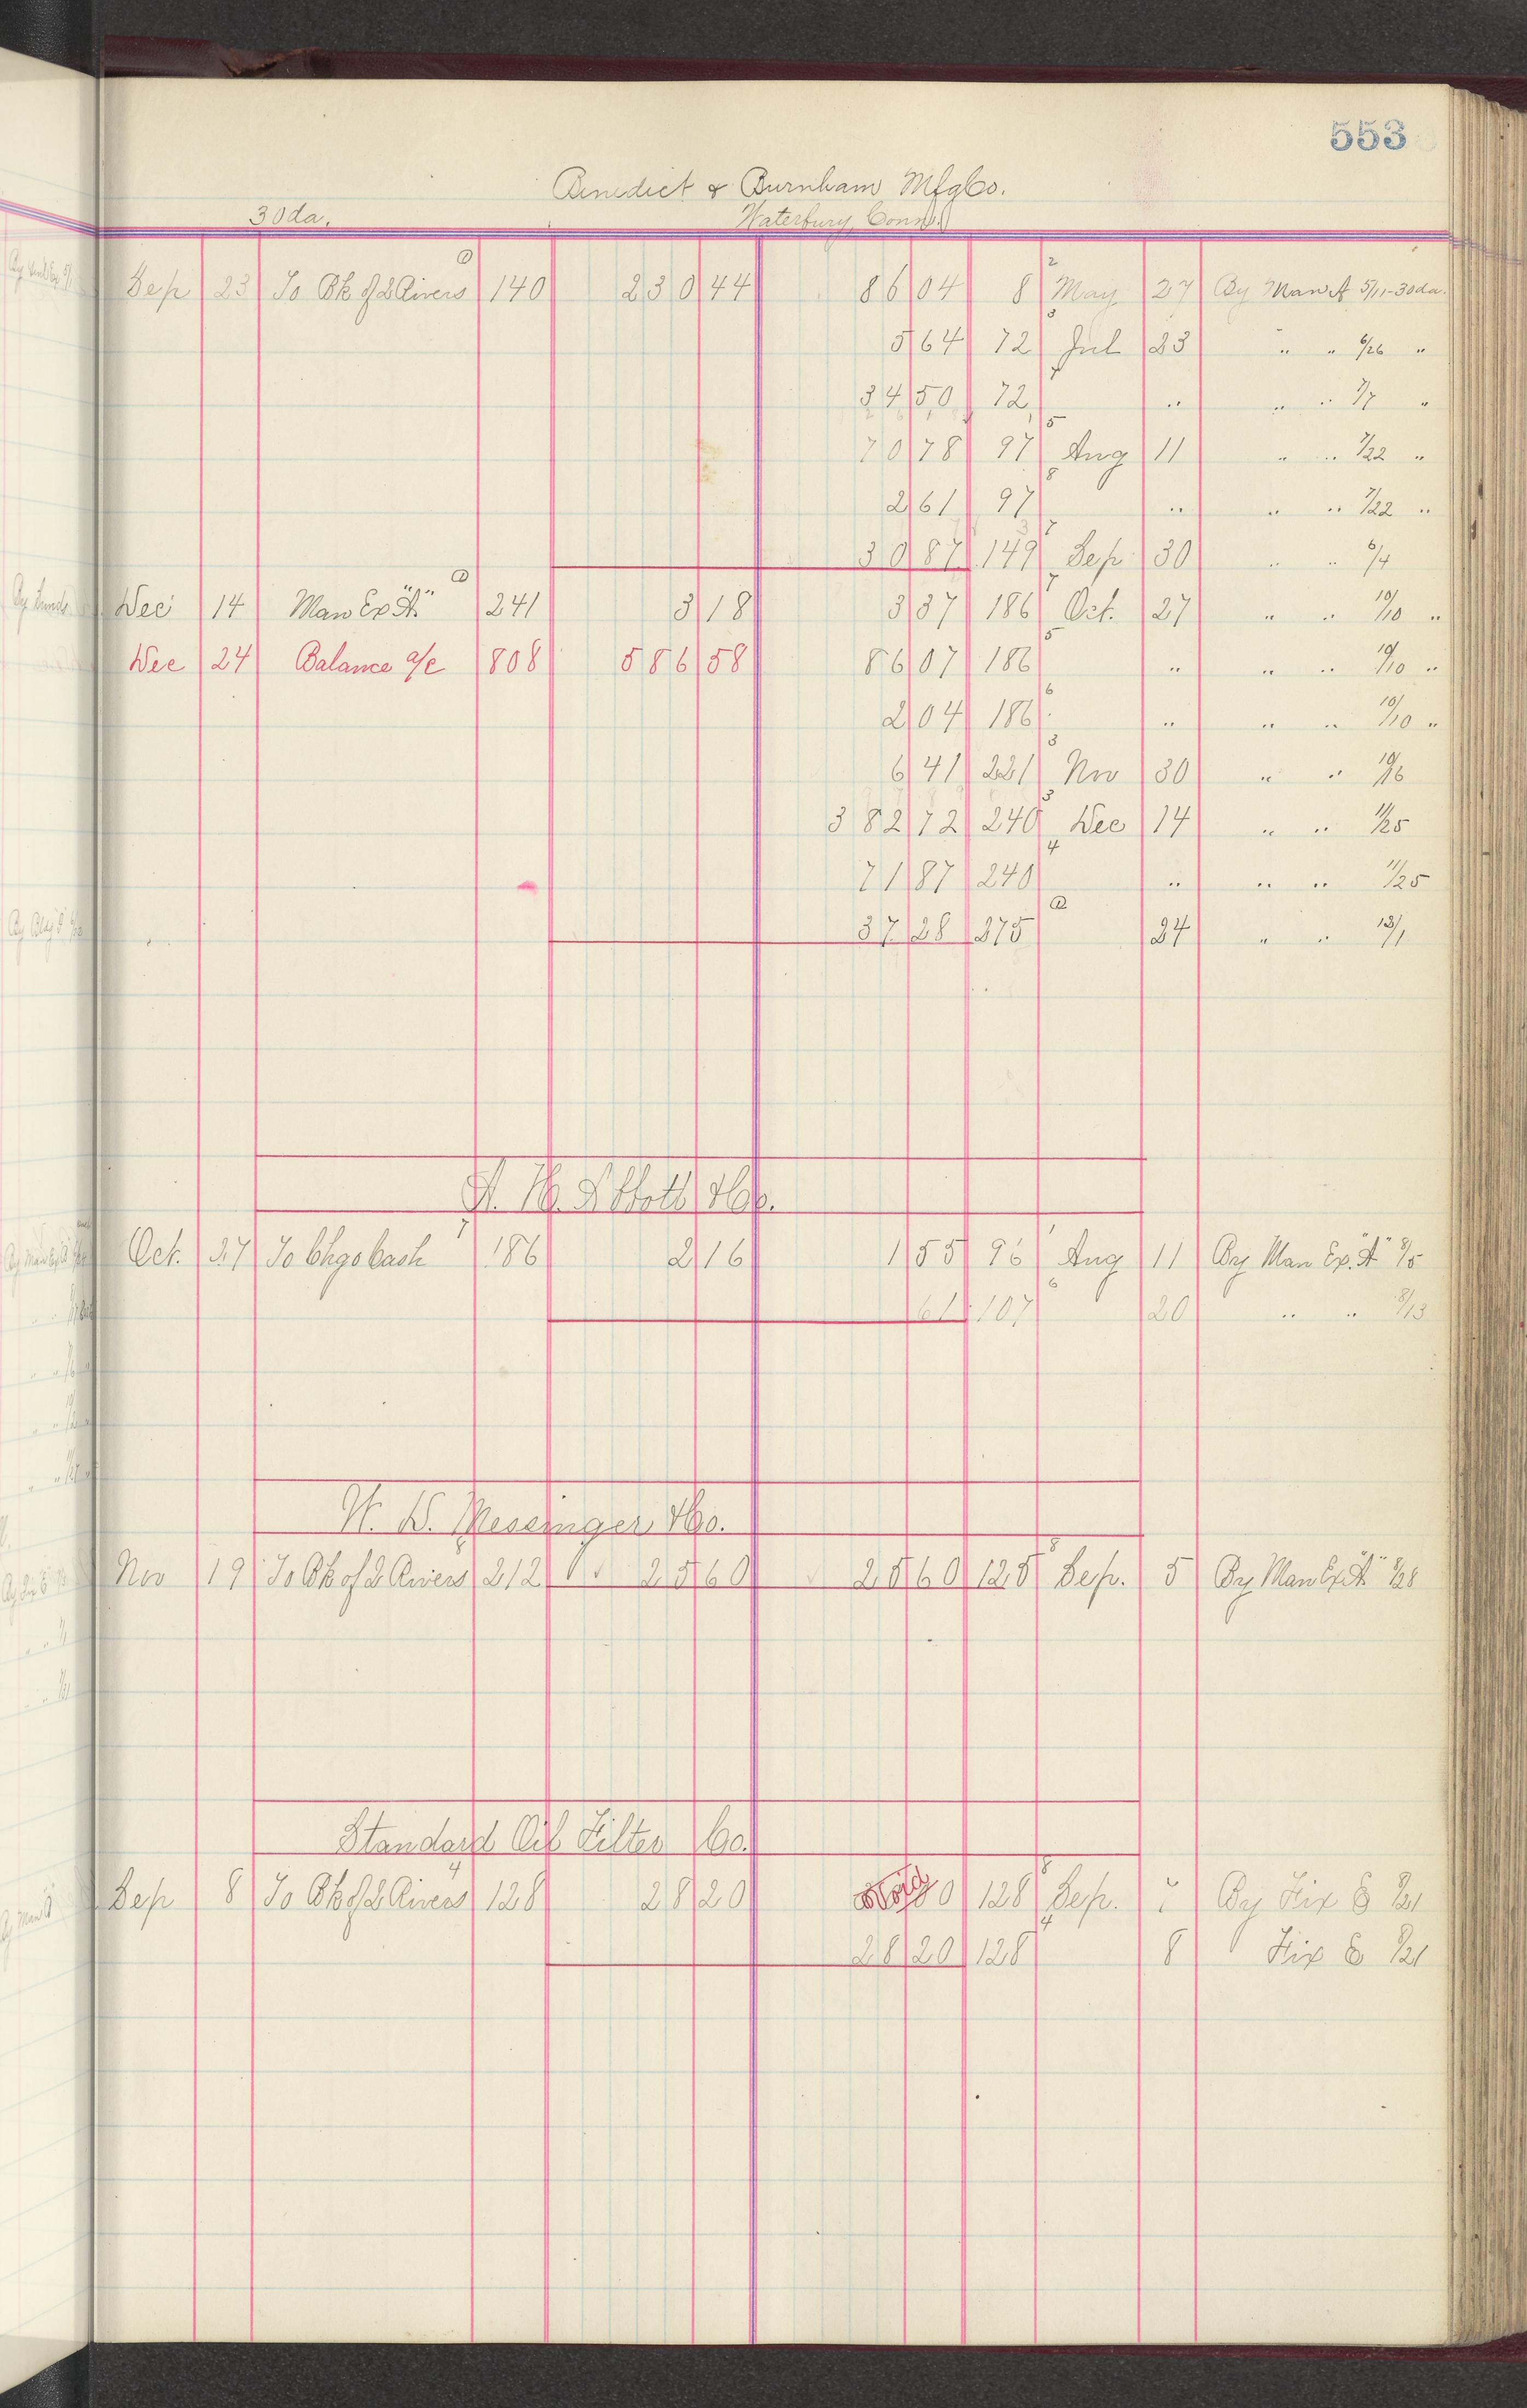 553
Benedict & Burnham Mfg Co.
30 da. Waterbury, Conn.
Sep 23 To Bk of 2 Rivers 1 140 230 44 86 04 8 2 May 27 By Man A 5/11-30da.
5 64 72 3 Jul 23 " " 6/26 "
34 50 72 7 " " " 7/7 "
70 78 97 5 Aug 11 " " 7/22 "
2 61 97 8 " " " 7/22 "
30 87 149 7 Sep 30 " " 6/4
Dec 14 Man Ex "A" 2 241 3 18 3 37 186 7 Oct. 27 " " 10/10 "
Dec 24 Balance a/c 808 586 58 86 07 186 5 " " " 10/10 "
2 04 186 6 " " " 10/10 "
6 41 221 3 Nov 30 " " 10/16
382 72 240 3 Dec 14 " " 11/25
71 87 240 4 " " " 11/25
37 28 275 2 24 " " 12/1
& Co.
Oct. 27 To Chgo Cash 7 186 2 16 1 55 96 1 Aug 11 By Man Ex. "A" 8/5
61 107 6 20 " " 8/13
W. D. Messinger & Co.
Nov 19 To Bk of 2 Rivers 212 25 60 25 60 125 Sep. 5 By Man Ex "A" 8/28
Standard Oil Filter Co.
Sep 8 To Bk of 2 Rivers 4 128 28 20 128 Sep. By Fix
28 20 128 4 8 Fix